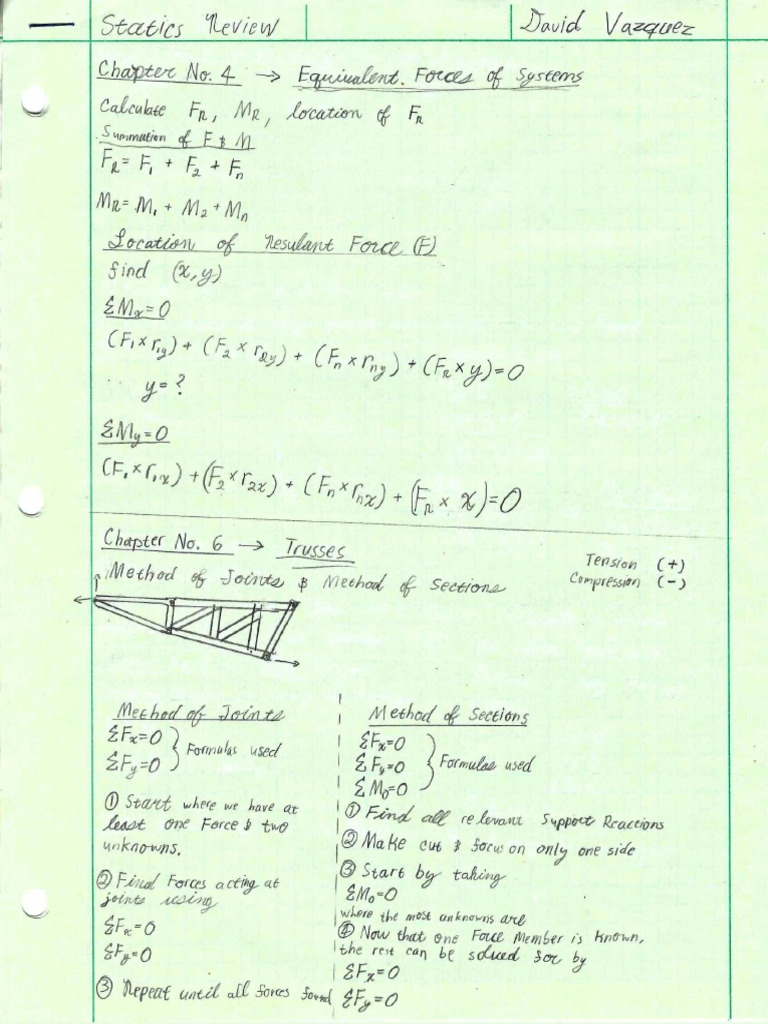 Statics Review David Vazquez
Chapter No. 4 → Equivalent. Forces of Systems
Calculate F_R, M_R, location of F_R
Summation of F & M
F_R = F_1 + F_2 + F_n
M_R = M_1 + M_2 + M_n
Location of Resulant Force (F)
find (x,y)
ΣM_x=0
(F_1 × r_1y) + (F_2 × r_2y) + (F_n × r_ny) + (F_R × y) = 0
y = ?
ΣM_y=0
(F_1 × r_1x) + (F_2 × r_2x) + (F_n × r_nx) + (F_R × x) = 0
Chapter No. 6 → Trusses
Tension (+)
Compression (-)
Method of Joints & Method of Sections
Method of Joints
ΣF_x=0
ΣF_y=0
} Formulas used
① Start where we have at
least one Force & two
unknowns.
② Find Forces acting at
joints using
ΣF_x=0
ΣF_y=0
③ Repeat until all forces found
Method of Sections
ΣF_x=0
ΣF_y=0
ΣM_0=0
} Formulas used
① Find all relevant Support Reactions
② Make cut & focus on only one side
③ Start by taking
ΣM_0=0
where the most unknowns are
④ Now that one Force Member is known,
the rest can be solved for by
ΣF_x=0
ΣF_y=0